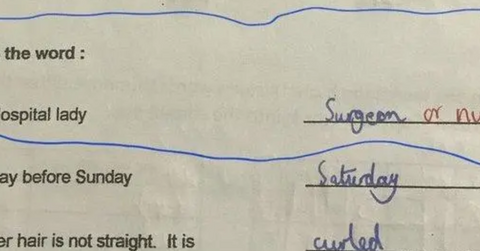 the word :
ospital lady Surgeon or nu
ay before Sunday Saturday
er hair is not straight. It is curled